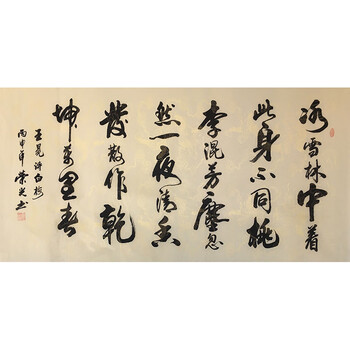 冰雪林中着
此身不同桃
李混芳塵忽
然一夜清香
發散作乾
坤萬里春
王冕诗白梅
丙申年书